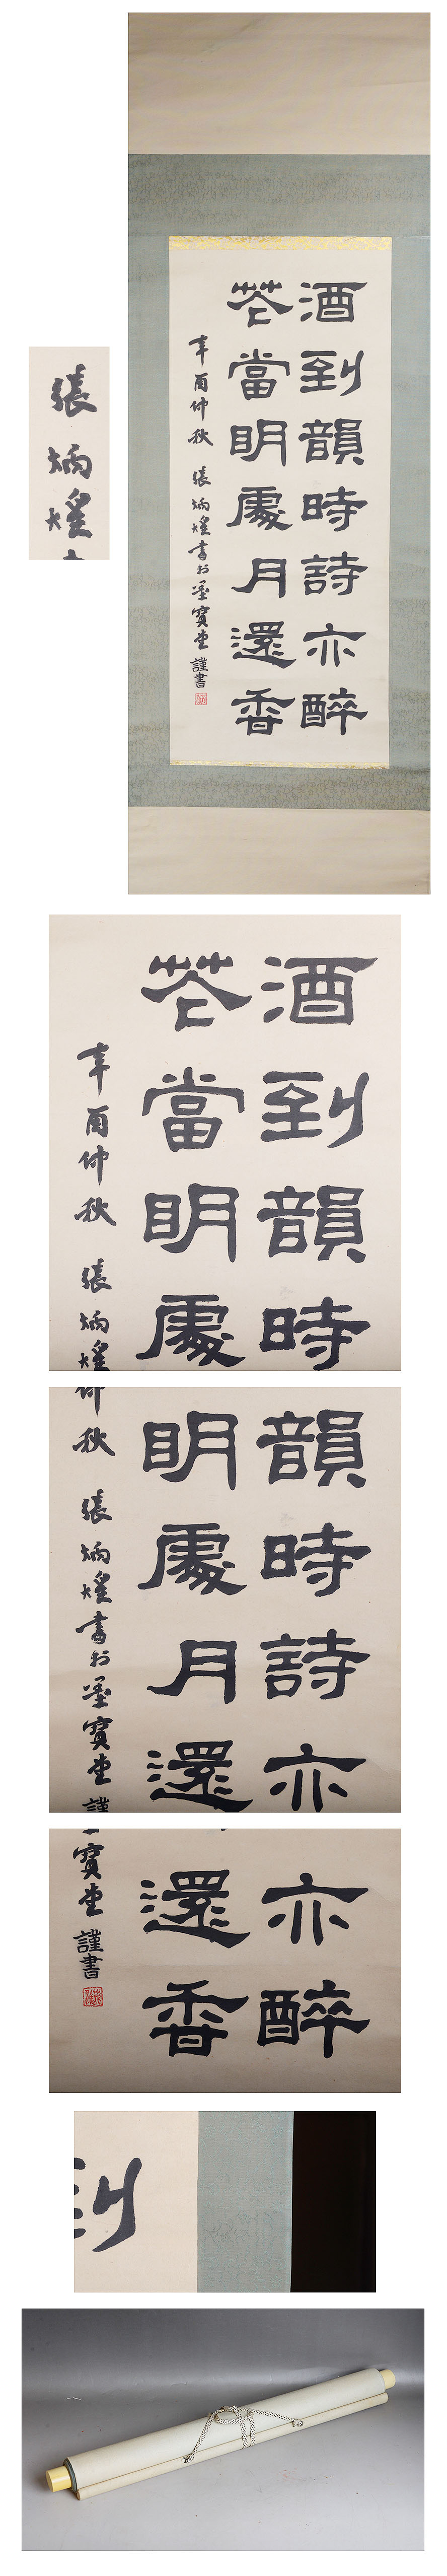 酒到韻時詩亦醉
花當明處月還香
辛酉仲秋 張炳煌書於墨寶堂 謹書
張炳煌
酒到韻時
花當明處
辛酉仲秋 張炳煌
韻時詩亦
明處月還
仲秋 張炳煌書於墨寶堂 謹
亦醉
還香
寶堂 謹書
到